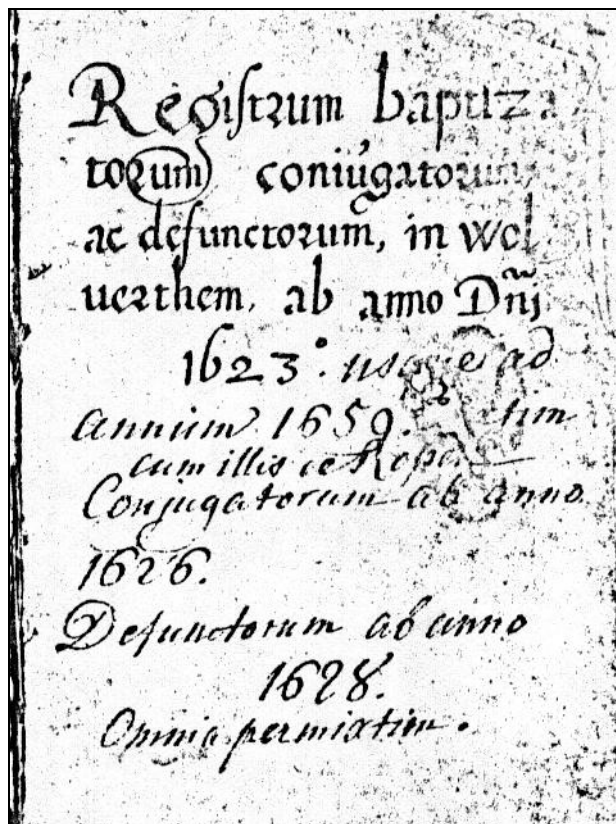 Registrum baptiza
torum coniugatorum
ac defunctorum, in Wol
verthem, ab anno Dñi
1623°. usque ad
annum 1659. tim
cum illis
Conjugatorum ab anno
1626.
Defunctorum ab anno
1628.
Omnia permixtim.